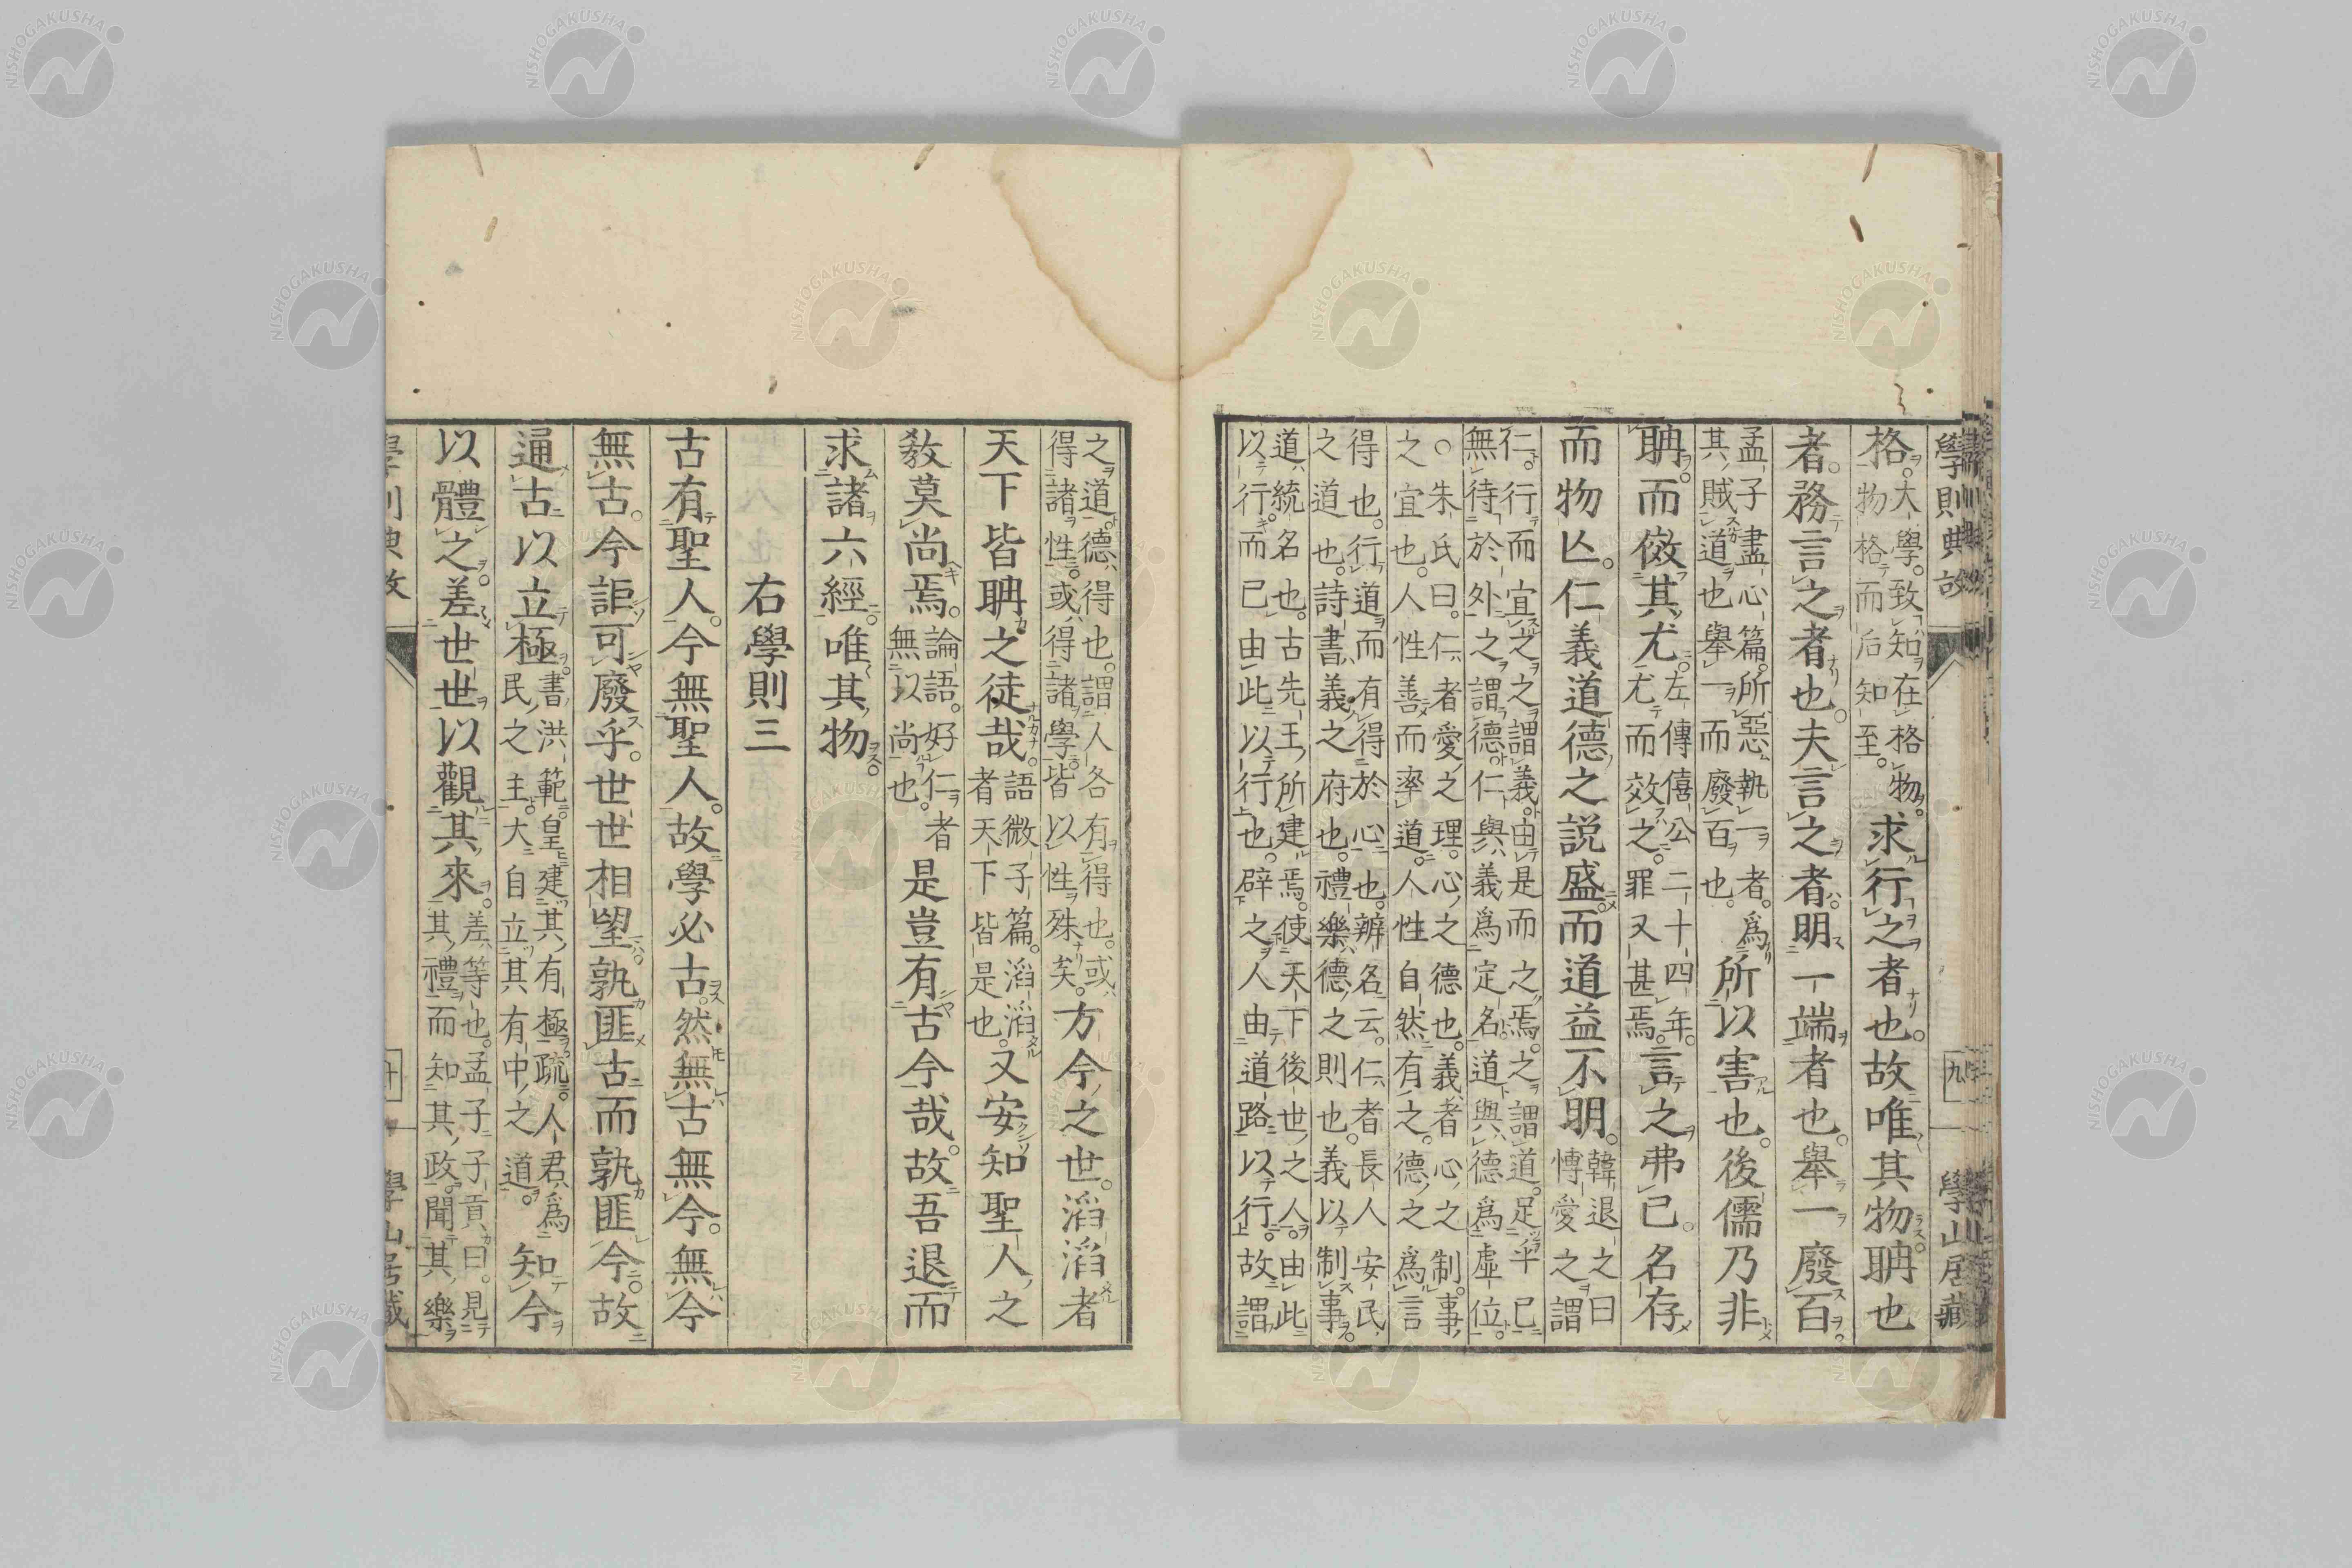 學則典故
九
學山居藏
格。大學。致知在格物。
物格而后知至。
求行之者也。故唯其物耼也
者。務言之者也。夫言之者。明一端者也。舉一廢百。
孟子盡心篇。所惡執一者。爲
其賊道也。舉一而廢百也。
所以害也。後儒乃非
耼。而傚其尤。
左傳僖公二十四年。
尤而效之。罪又甚焉。
言之弗已。名存
而物亾。仁義道德之説盛而道益不明。
韓退之曰
愽愛之謂
仁。行而宜之之謂義。由是而之焉。之謂道。足乎已
無待於外之謂德。仁與義爲定名。道與德爲虛位。
○朱氏曰。仁者愛之理。心之德也。義者心之制。事
之宜也。人性善而率道。人性自然有之。德之爲言
得也。行道而有得於心也。辨名云。仁者長人安民
之道也。詩書義之府也。禮樂德之則也。義以制事。
道統名也。古先王所建焉。使天下後世之人。由此
以行。而已由此以行也。辟之人由道路以行。故謂
之道。德得也。謂人各有得也。或
得諸性。或得諸學。皆以性殊矣。
方今之世。滔滔者
天下皆耼之徒哉。
語微子篇。滔滔
者天下皆是也。
又安知聖人之
教莫尚焉。
論語。好仁者
無以尚也。
是豈有古今哉。故吾退而
求諸六經。唯其物。
右學則三
古有聖人。今無聖人。故學必古。然無古無今。無今
無古。今詎可廢乎。世世相望。孰匪古而孰匪今。故
通古以立極。
書洪範。皇建其有極。疏。人君爲
民之主。大自立其有中之道。
知今
以體之。差世世以觀其來。
差等也。孟子子貢曰。見
其禮而知其政。聞其樂
學則典故
十
學山居藏